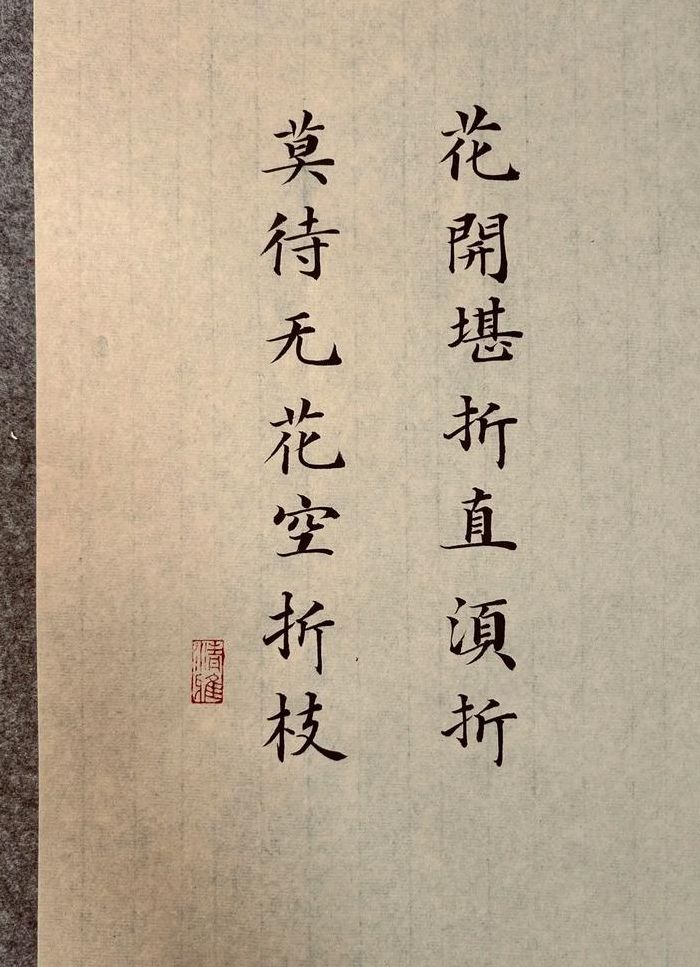 花開堪折直湏折
莫待无花空折枝